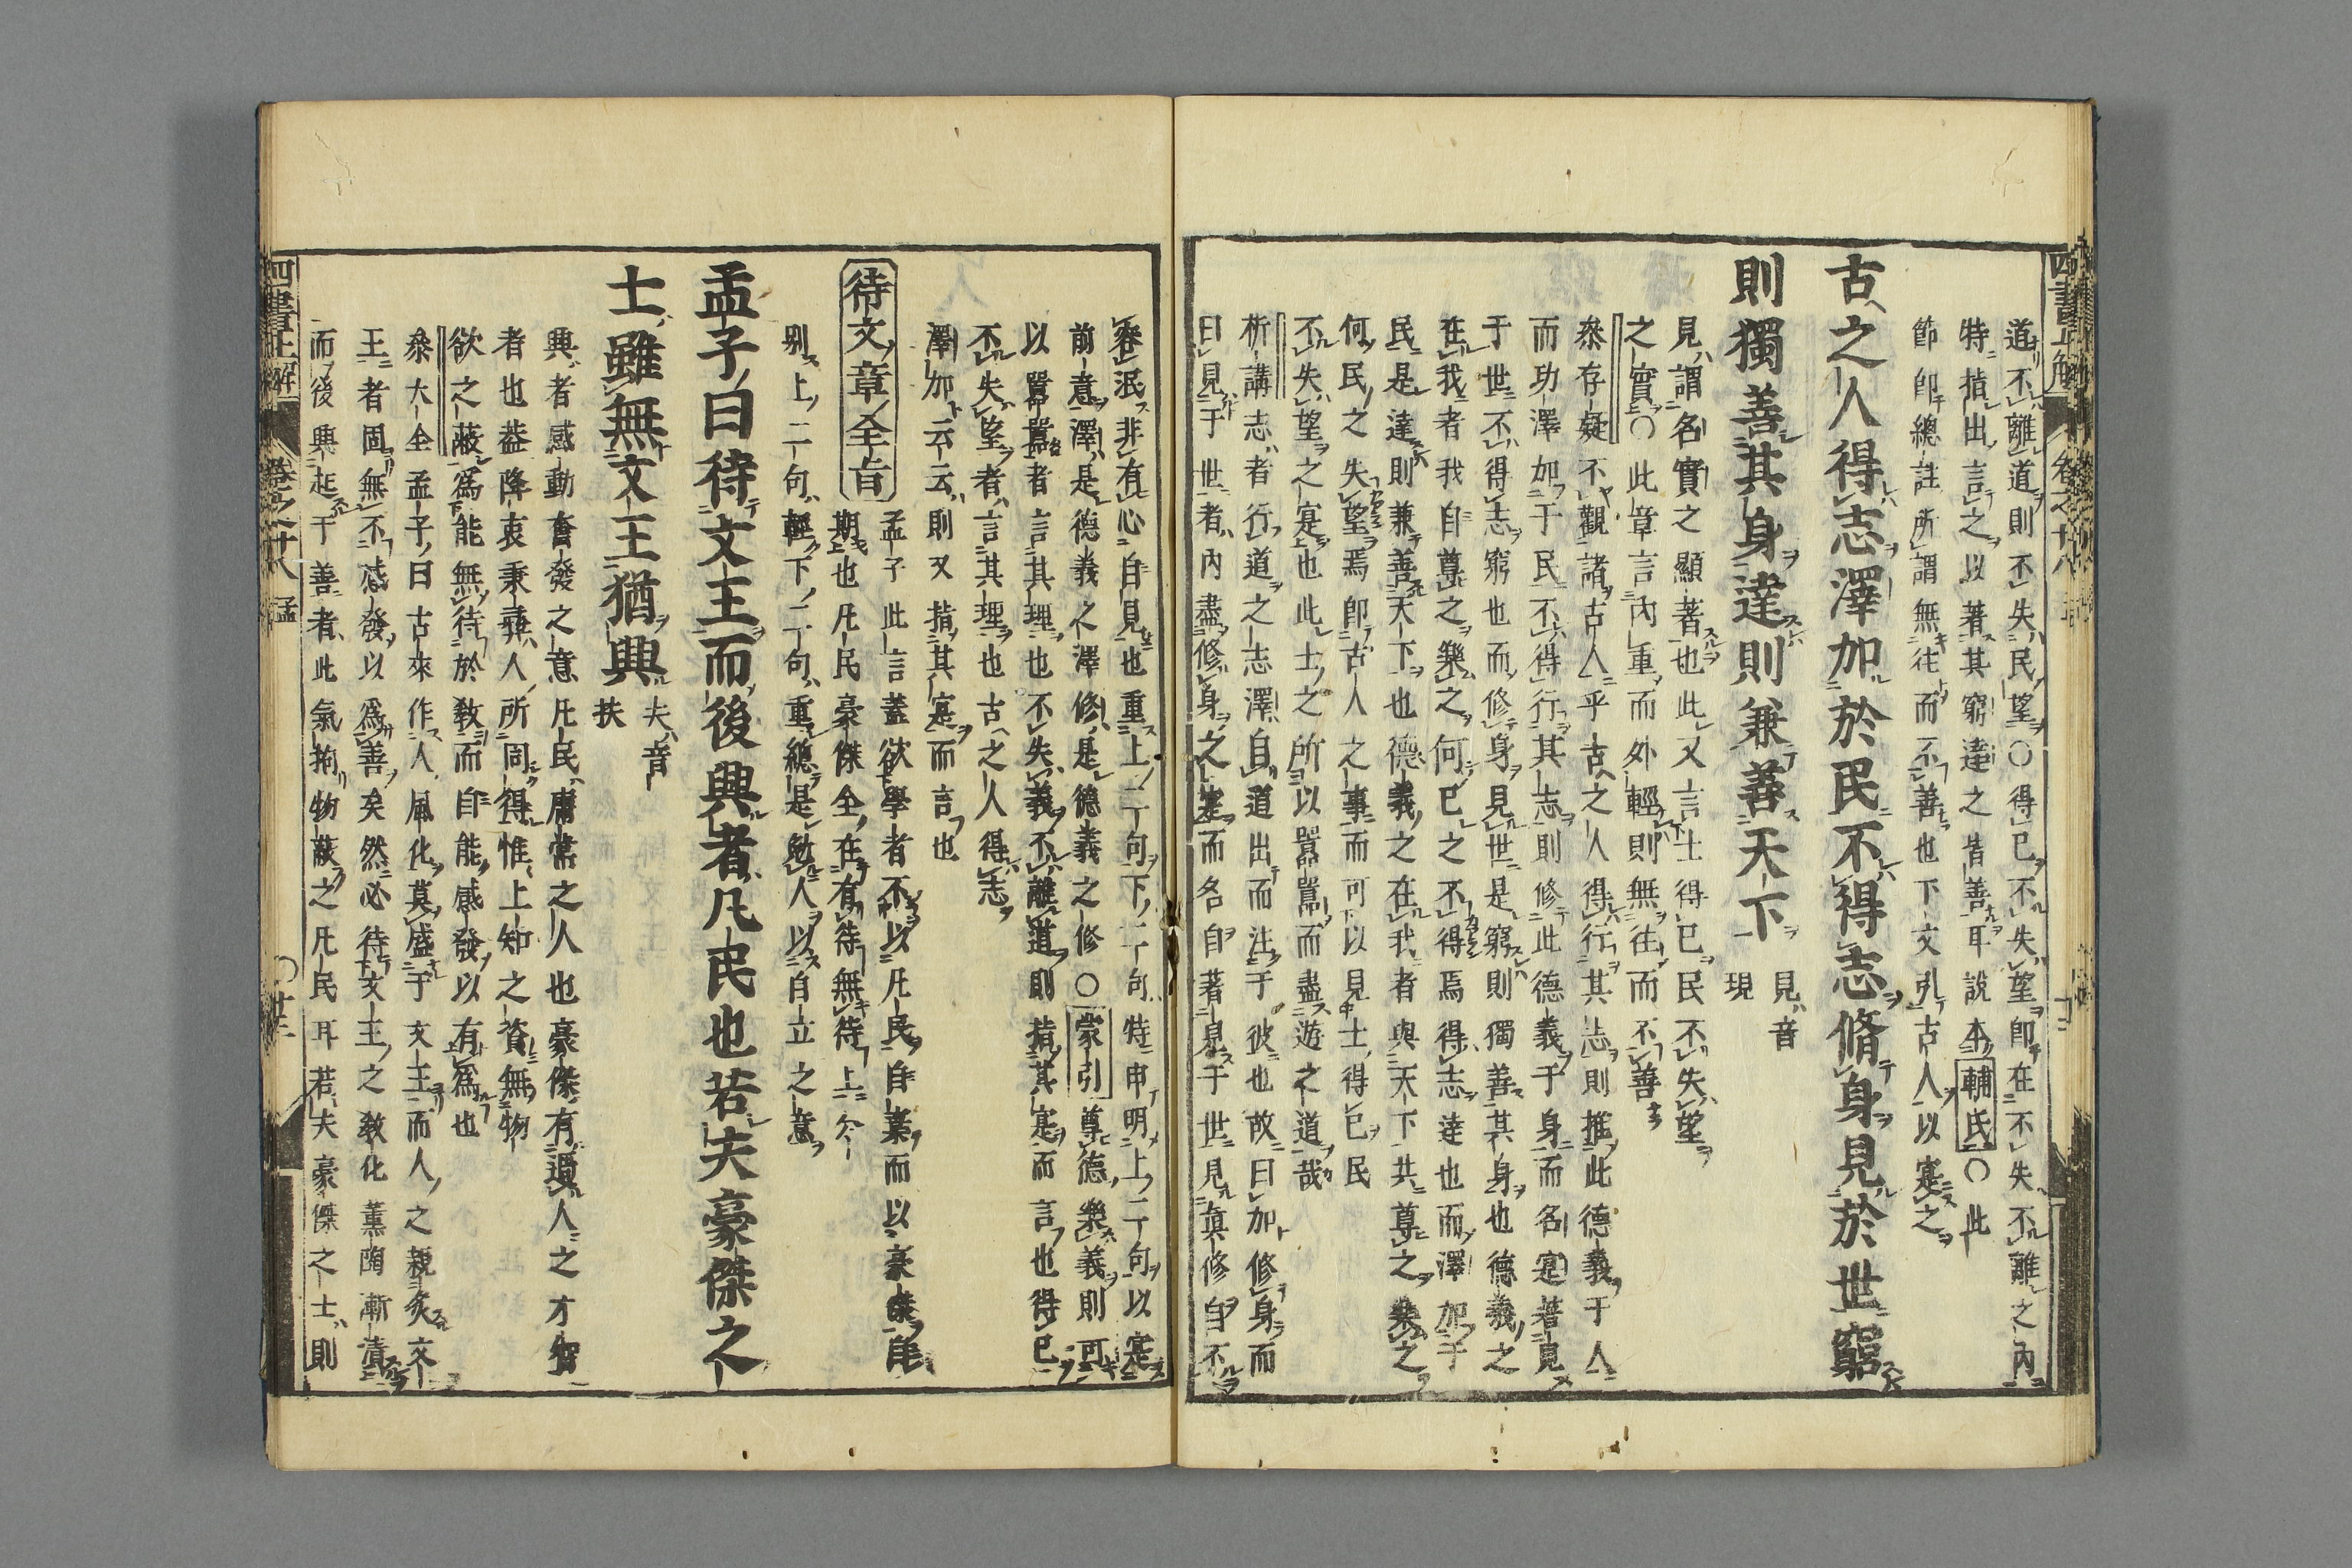 道不離道則不失民望○得已不失望卽在不失不離之內
特揩出言之以著其窮達之皆善耳說本輔氏○此
節卽總註所謂無徃而不善也下文引古人以寔之
古之人得志澤加於民不得志脩身見於世窮
則獨善其身達則兼善天下
見音
現
見謂名實之顯著也此又言士得已民不失望
之實○此章言內重而外輕則無徃而不善
叅存疑不觀諸古人乎古之人得行其志則推此德義于人
而功澤加于民不得行其志則修此德義于身而名寔著見
于世不得志窮也而修身見世是窮則獨善其身也德義之
在我者我自尊之樂之何已之不得焉得志達也而澤加于
民是達則兼善天下也德義之在我者與天下共尊之樂之
何民之失望焉卽古人之事而可以見士得已民
不失望之寔也此士之所以囂囂而盡遊之道哉
析講志者行道之志澤自道出而注于彼也故曰加修身而
曰見于世者內盡修身之寔而各自著見于世見眞修自不
容泯非有心自見也重上二句下二句特申明上二句以寔
前意澤是德義之澤修是德義之修○蒙引尊德樂義則可
以囂囂者言其理也不失義不離道則揩其寔而言也得已
不失望者言其理也古之人得志
澤加云云則又揩其寔而言也
待文章全旨
孟子此言蓋欲學者不以凡民自棄而以豪傑自
期也凡民豪傑全在有待無待上分
別上二句輕下二句重總是勉人以自立之意
孟子曰待文王而後興者凡民也若夫豪傑之
士雖無文王猶興
夫音
扶
興者感動奮發之意凡民庸常之人也豪傑有過人之才智
者也葢降衷秉彝人所同得惟上知之資無物
欲之蔽爲能無待於敎而自能感發以有爲也
叅大全孟子曰古來作人風化莫盛于文王而人之親炙文
王者固無不感發以爲善矣然必待文王之敎化薰陶漸漬
而後興起于善者此氣拘物蔽之凡民耳若夫豪傑之士則
四書正解
卷之十八
孟